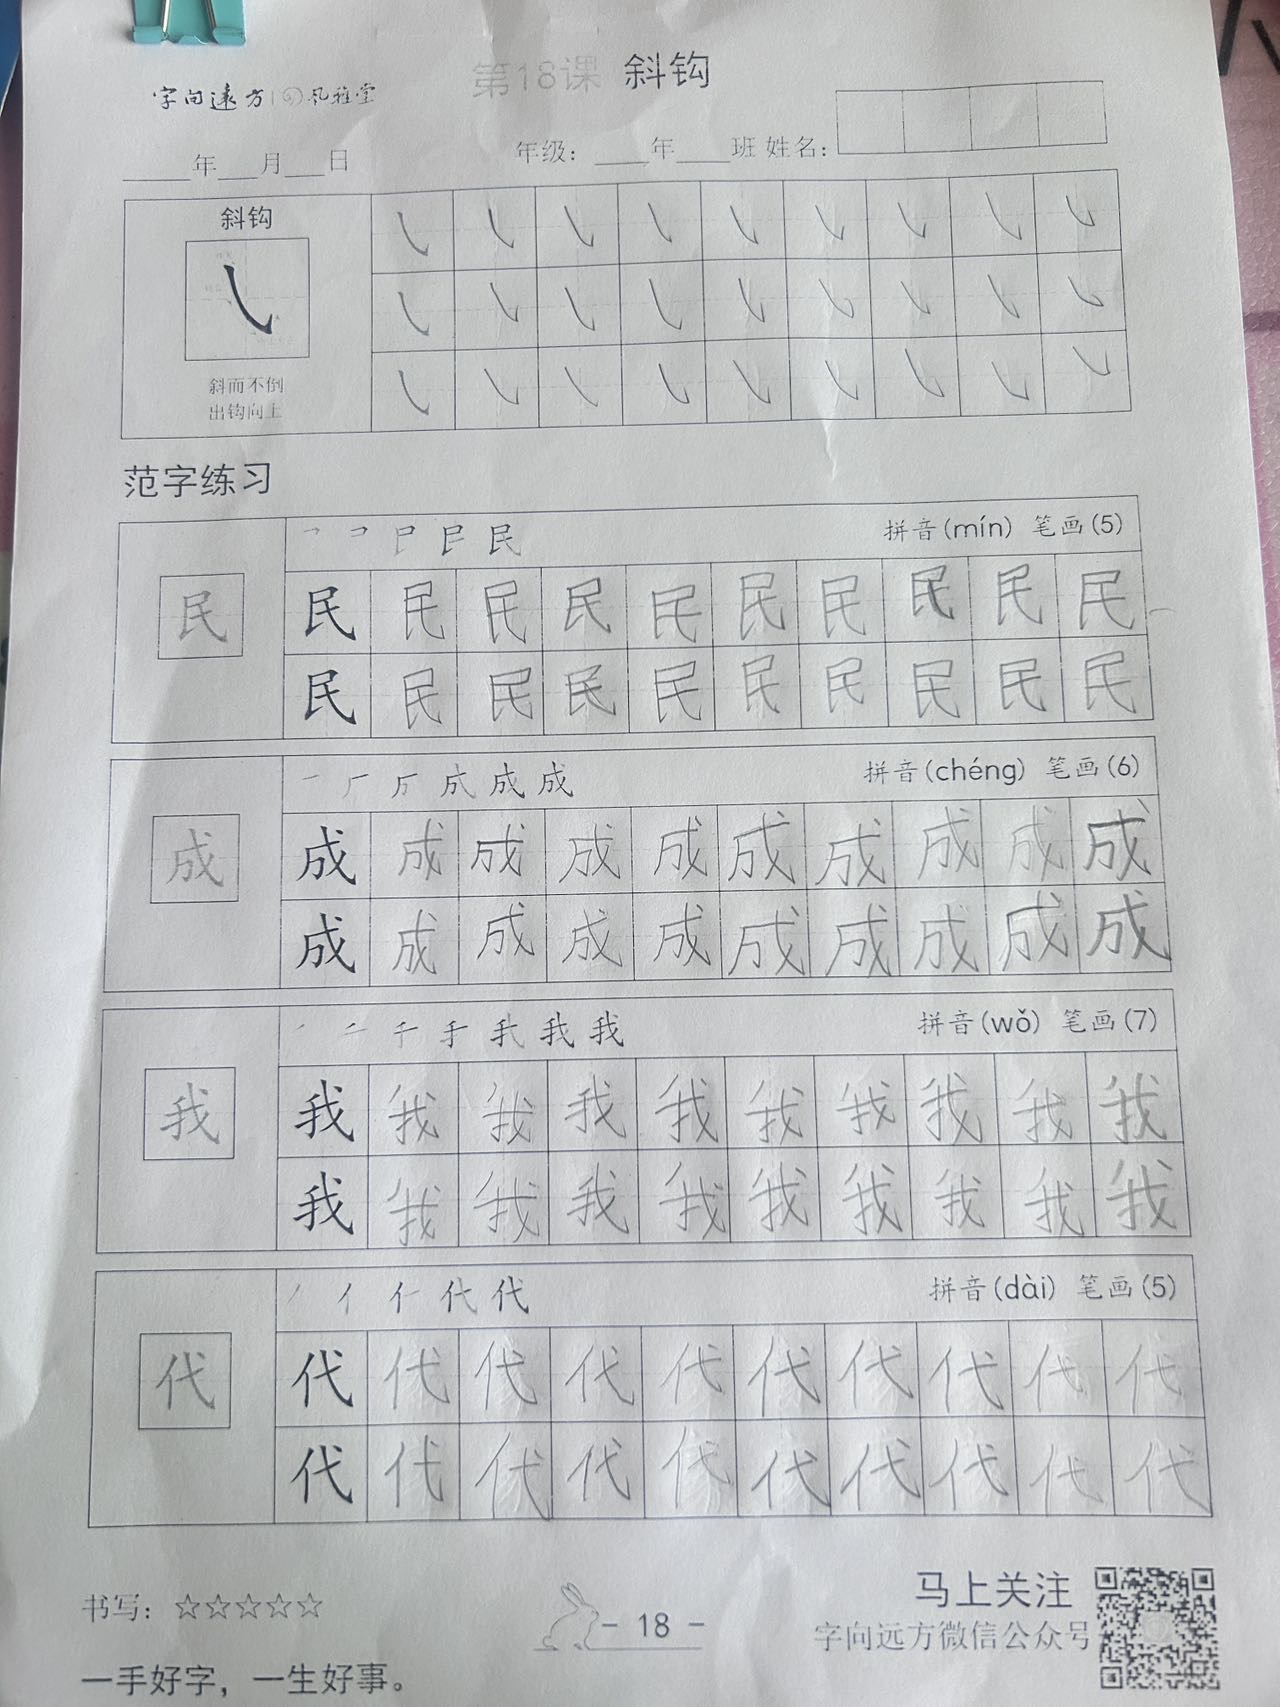 第18课 斜钩
字向远方 风雅堂
年 月 日 年级: 年 班 姓名:
斜钩
斜而不倒
出钩向上
范字练习
民 拼音(mín) 笔画(5)
民
民 民 民 民 民 民 民 民 民 民
民 民 民 民 民 民 民 民 民 民
成 成 成 拼音(chéng) 笔画(6)
成
成 成 成 成 成 成 成 成 成 成
成 成 成 成 成 成 成 成 成 成
我 我 拼音(wǒ) 笔画(7)
我
我 我 我 我 我 我 我 我 我 我
我 我 我 我 我 我 我 我 我 我
代 代 拼音(dài) 笔画(5)
代
代 代 代 代 代 代 代 代 代 代
代 代 代 代 代 代 代 代 代 代
书写: ☆☆☆☆☆
- 18 -
马上关注
字向远方微信公众号
一手好字，一生好事。